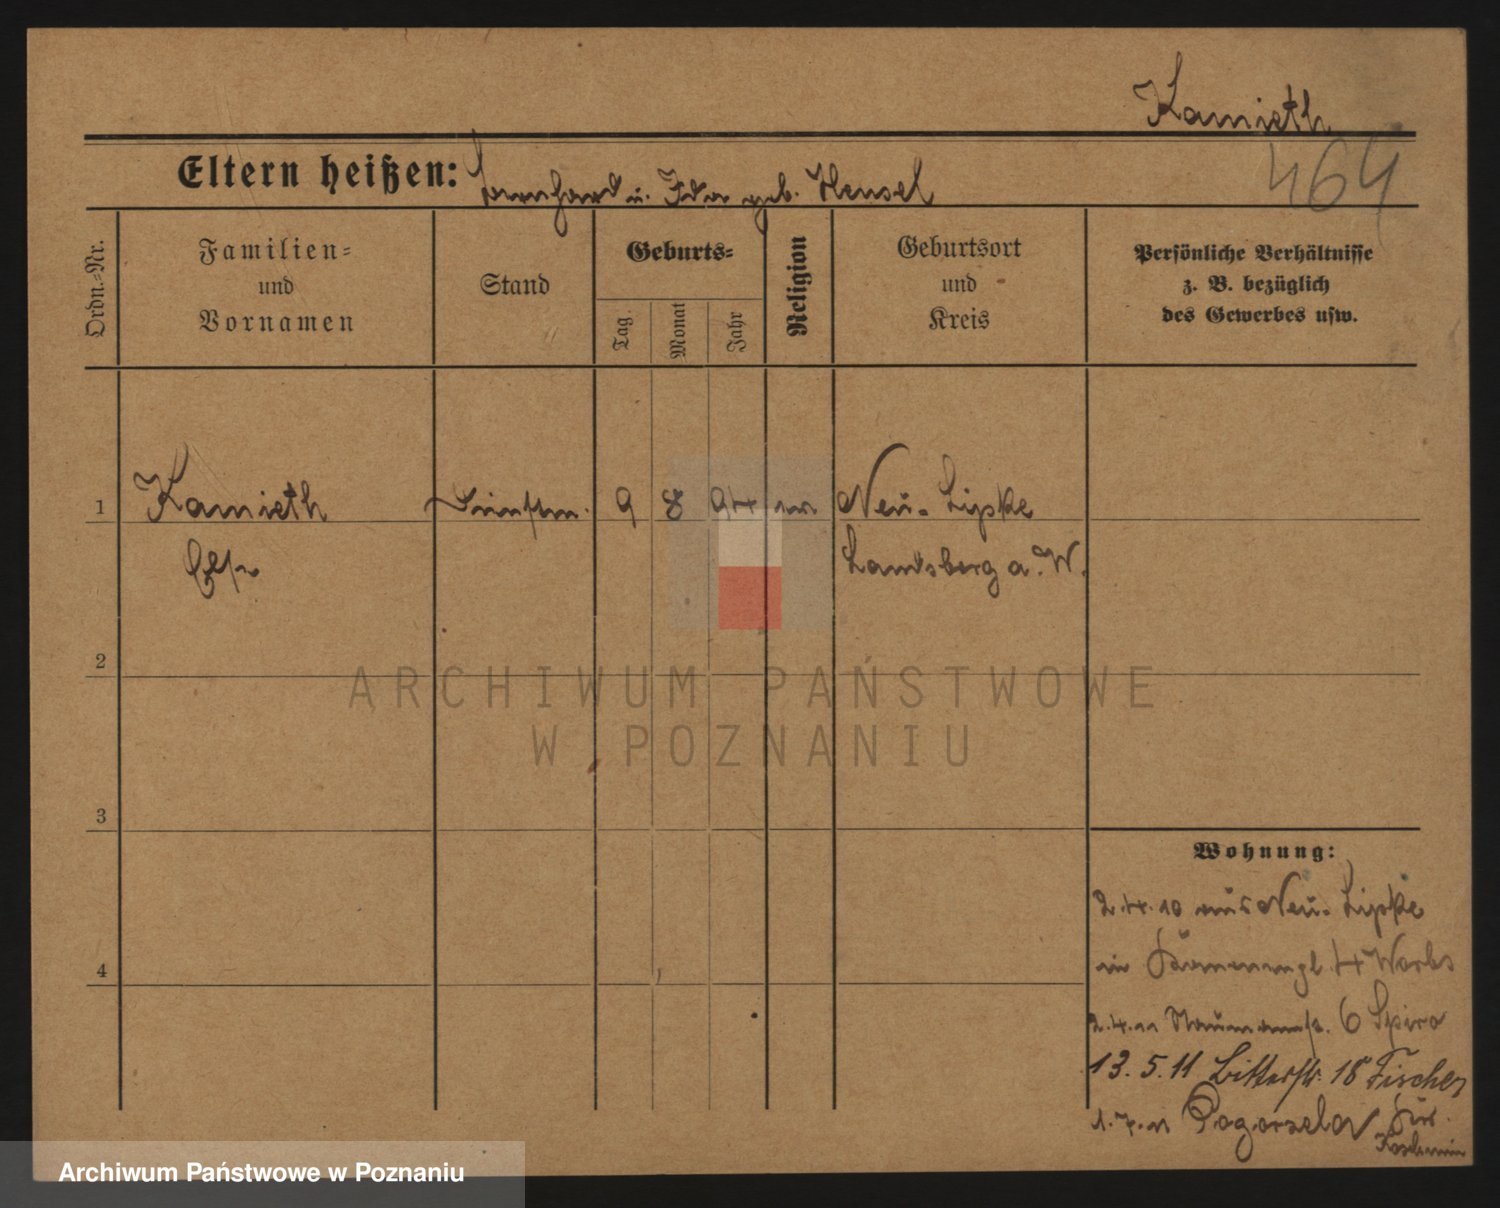 Kamieth
464
Eltern heißen: Bernhard u. Ida geb. Hensel
Ordn.-Nr.
Familien-
und
Vornamen
Stand
Geburts-
Tag
Monat
Jahr
Religion
Geburtsort
und
Kreis
Persönliche Verhältnisse
z. B. bezüglich
des Gewerbes usw.
1 Kamieth 9 8 94 Neu-Lipke
Else Landsberg a. W.
2
3
4
Wohnung:
2.4.10 aus Neu-Lipke
in 4 Warks
2.4.11 Naumannstr. 6 Spiro
13.5.11 Bitterstr. 18 Fischer
1.7.11 Pogorzela Kr.
Koschmin
ARCHIWUM PAŃSTWOWE
W POZNANIU
Archiwum Państwowe w Poznaniu